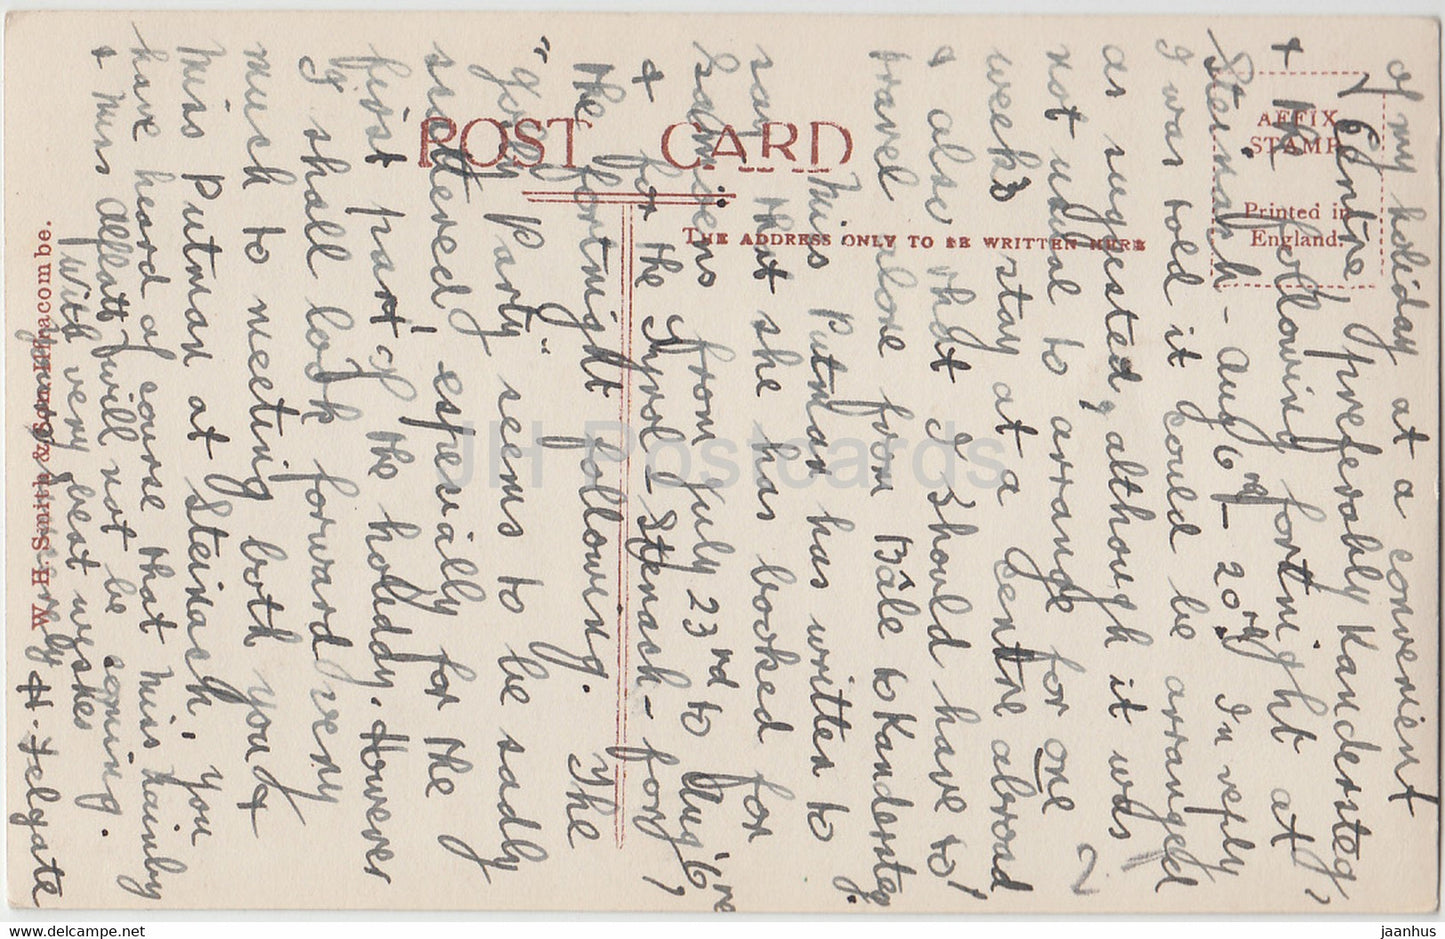 of my holiday at a convenient
centre, preferably Kandersteg,
& the following fortnight at
Steinach - Aug 6th - 20th. In reply
I was told it could be arranged
as suggested, although it was
not usual to arrange for one
weeks stay at a centre abroad
& also that I should have to
travel alone from Bâle to Kandersteg.
Miss Putman has written to
say that she has booked for
Samgens from July 23rd to Aug 6th
& for the Tyrol - Steinach - for
the fortnight following. The
"Jolly Party" seems to be sadly
scattered, especially for the
first part of the holiday. However
I shall look forward very
much to meeting both you &
Miss Putman at Steinach. You
have heard of course that Miss Hainby
& Miss will not be coming.
With very best wishes
H. Felgate
2
POST CARD
THE ADDRESS ONLY TO BE WRITTEN HERE
AFFIX
STAMP
Printed in
England.
W. H. Smith & Son, Ilfracombe.
JH Postcards
delcampe.net
jaanhus